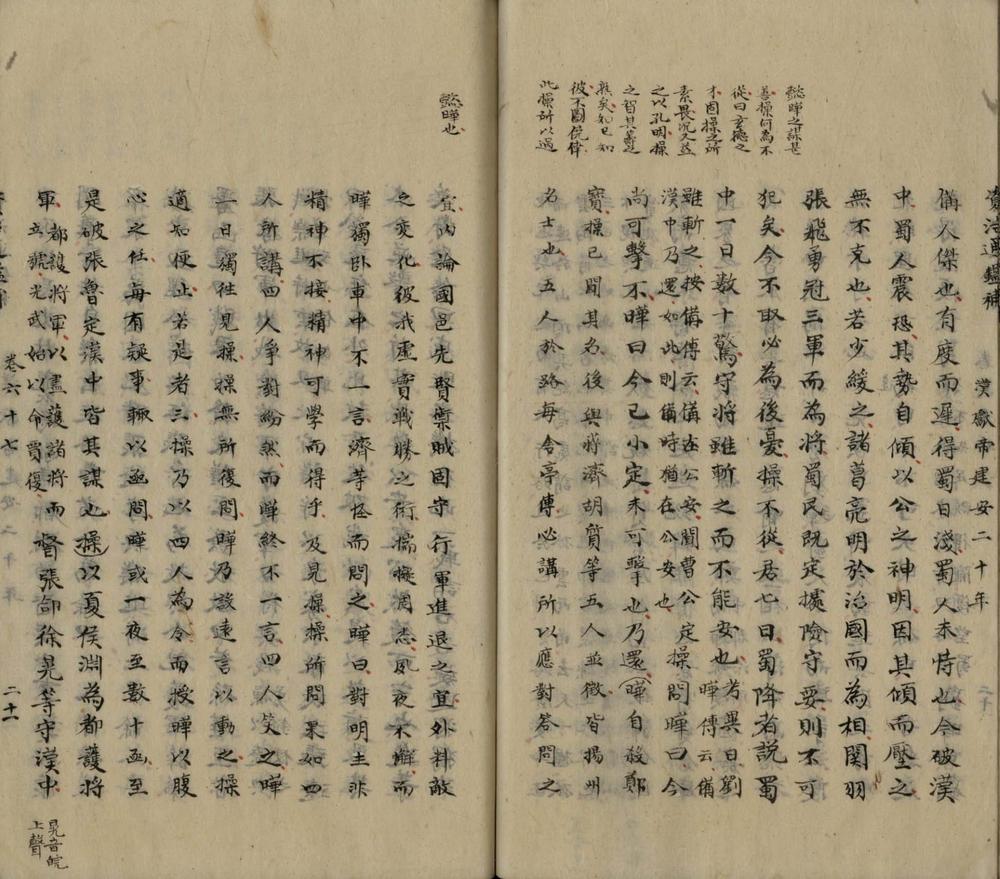 資治通鑑補
漢獻帝建安二十年
懿曄之謀甚
善操何為不
從曰玄德之
才固操之所
素畏況又益
之以孔明操
之智其審之
熟矣知已知
彼不圖僥倖
此操所以過
備人傑也有度而遲得蜀日淺蜀人未恃也今破漢
中蜀人震恐其勢自傾以公之神明因其傾而壓之
無不克也若少緩之諸葛亮明於治國而為相關羽
張飛勇冠三軍而為將蜀民既定據險守要則不可
犯矣今不取必為後憂操不從居七日蜀降者說蜀
中一日數十驚守將雖斬之而不能安也考異曰劉曄傳云備
雖斬之按備傳云備在公安聞曹公定
漢中乃還如此則備時猶在公安也操問曄曰今
尚可擊不曄曰今已小定未可擊也乃還曄自殺鄭
寶操已聞其名後與將濟胡質等五人並徵皆揚州
名士也五人於路每舍亭傳必講所以應對答問之
懿曄也
宜內論國邑先賢禦賊固守行軍進退之宜外料敵
之變化彼我虛實戰勝之術揣擬周悉夙夜不解而
曄獨卧車中不一言濟等怪而問之曄曰對明主非
精神不接精神可學而得乎及見操操所問果如四
人所講四人爭對紛然而曄終不一言四人笑之曄
一日獨往見操操無所復問曄乃設遠言以動之操
適知便止若是者三操乃以四人為令而授曄以腹
心之任每有疑事輒以函問曄或一夜至數十函至
是破張魯定漢中皆其謀也操以夏侯淵為都護將
軍都護將軍以盡護諸將而
立號光武始以命賈復督張郃徐晃等守漢中
晃音皖
上聲
卷六十七
建安二十年
二十一